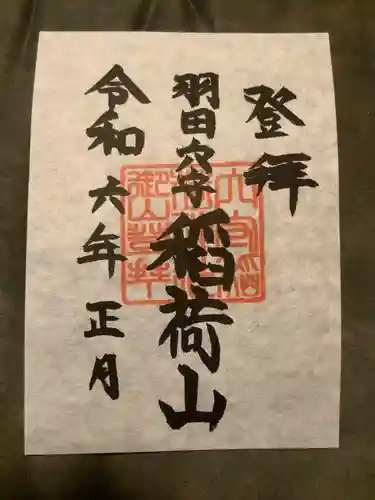 登拝
羽田穴守
稲荷山
令和六年正月